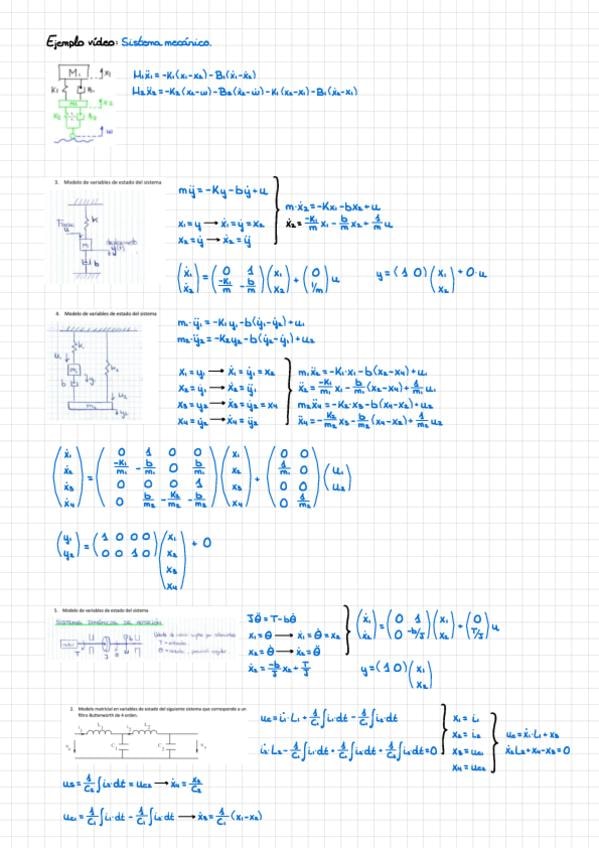 Ejemplo vídeo: Sistema mecánico.
M₁ẍ₁=-K₁(x₁-x₂)-B₁(ẋ₁-ẋ₂)
M₂ẍ₂=-K₂(x₂-w)-B₂(ẋ₂-ẇ)-K₁(x₂-x₁)-B₁(ẋ₂-ẋ₁)
3. Modelo de variables de estado del sistema
mÿ=-Ky-bẏ+u
x₁=y → ẋ₁=ẏ=x₂
x₂=ẏ → ẋ₂=ÿ
m·ẋ₂=-Kx₁-bx₂+u
ẋ₂=-K/m x₁-b/m x₂+1/m u
(ẋ₁ ẋ₂)=(0 1 -K/m -b/m)(x₁ x₂)+(0 1/m)u
y=(1 0)(x₁ x₂)+0·u
4. Modelo de variables de estado del sistema
m₁·ÿ₁=-K₁y₁-b(ẏ₁-ẏ₂)+u₁
m₂·ÿ₂=-K₂y₂-b(ẏ₂-ẏ₁)+u₂
x₁=y₁ → ẋ₁=ẏ₁=x₂
x₂=ẏ₁ → ẋ₂=ÿ₁
x₃=y₂ → ẋ₃=ẏ₂=x₄
x₄=ẏ₂ → ẋ₄=ÿ₂
m₁ẋ₂=-K₁·x₁-b(x₂-x₄)+u₁
ẋ₂=-K₁/m₁ x₁-b/m₁(x₂-x₄)+1/m₁ u₁
m₂ẋ₄=-K₂·x₃-b(x₄-x₂)+u₂
ẋ₄=-K₂/m₂ x₃-b/m₂(x₄-x₂)+1/m₂ u₂
(ẋ₁ ẋ₂ ẋ₃ ẋ₄)=(0 1 0 0 -K₁/m₁ -b/m₁ 0 b/m₁ 0 0 0 1 0 b/m₂ -K₂/m₂ -b/m₂)(x₁ x₂ x₃ x₄)+(0 0 1/m₁ 0 0 0 0 1/m₂)(u₁ u₂)
(y₁ y₂)=(1 0 0 0 0 0 1 0)(x₁ x₂ x₃ x₄)+0
5. Modelo de variables de estado del sistema
SISTEMAS DINÁMICOS DE ROTACIÓN
Jθ̈=T-bθ̇
x₁=θ → ẋ₁=θ̇=x₂
x₂=θ̇ → ẋ₂=θ̈
ẋ₂=-b/J x₂+T/J
(ẋ₁ ẋ₂)=(0 1 0 -b/J)(x₁ x₂)+(0 T/J)u
y=(1 0)(x₁ x₂)
2. Modelo matricial en variables de estado del siguiente sistema que corresponde a un
filtro Butterworth de 4 orden.
L₁ L₂ C₁ C₂
ue=i̇₁·L₁+1/C₁∫i₁·dt-1/C₁∫i₂·dt
i̇₂·L₂-1/C₁∫i₁·dt+1/C₁∫i₂·dt+1/C₂∫i₂·dt=0
x₁=i₁
x₂=i₂
x₃=uc₁
x₄=uc₂
ue=ẋ₁·L₁+x₃
ẋ₂L₂+x₄-x₃=0
us=1/C₂∫i₂·dt=uc₂ → ẋ₄=x₂/C₂
uc₁=1/C₁∫i₁·dt-1/C₁∫i₂·dt → ẋ₃=1/C₁(x₁-x₂)